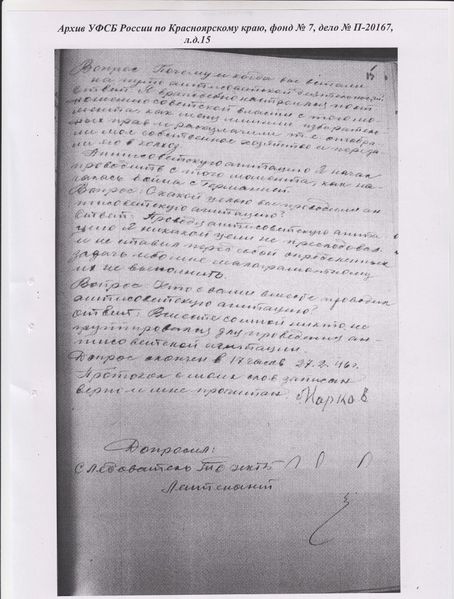 Архив УФСБ России по Красноярскому краю, фонд № 7, дело № П-20167,
л.д.15
Вопрос: Почему и когда вы встали
на путь антисоветской деятельности?
Ответ: Я враждебно настроен
Советской власти с того мо-
мента как меня лишили избиратель-
ных прав и раскулачили т.е. отобра-
ли мое собственное хозяйство и переда-
ли его в колхоз.
Антисоветскую агитацию я начал
проводить с того момента, как на-
чалась война с Германией.
Вопрос: С какой целью вы проводили ан-
тисоветскую агитацию?
Ответ: Проводя антисоветскую агита-
цию я никакой цели не преследовал
и не ставил перед собой определенных
задач
их не выполнить.
Вопрос: Кто с вами вместе проводил
антисоветскую агитацию?
Ответ: Вместе со мной никто не
группировался для проведения ан-
тисоветской агитации.
Допрос окончен в 17 часов 27.2.46г.
Протокол с моих слов записан
верно и мне прочитан Марков
Допросил:
Следователь
Лейтенант